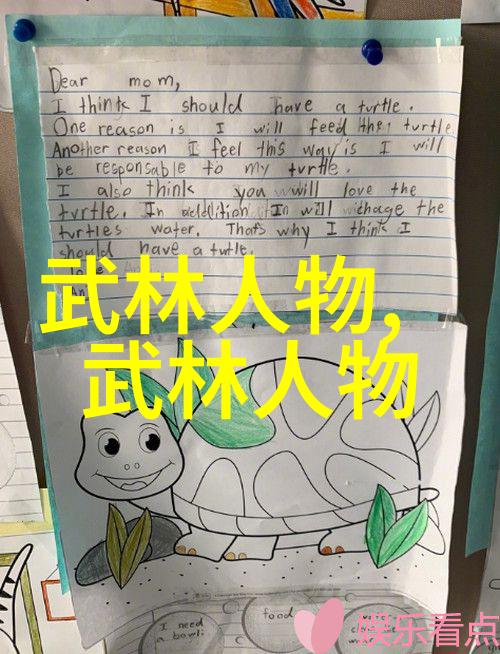 Dear mom,
I think I should have a turtle.
One reason is I will feed the turtle.
Another reason I feel this way is I will
be responsable to my turtle.
I also think you will love the
turtle. In addition I will chage the
turtles water. That's why I think I
should have a turtle.
武林人物,
武林人物
I need
a bowl:
food
娱乐看点